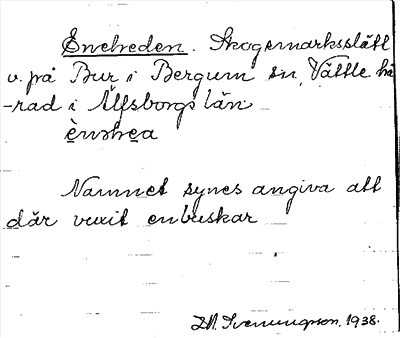 Eneheden. Skogsmarksslätt
v. på Bur i Bergum sn, Vättle hä
-rad i Älfsborgs län
ènǝhea
Namnet synes angiva att
där vuxit enbuskar
Svenungsson. 1938.